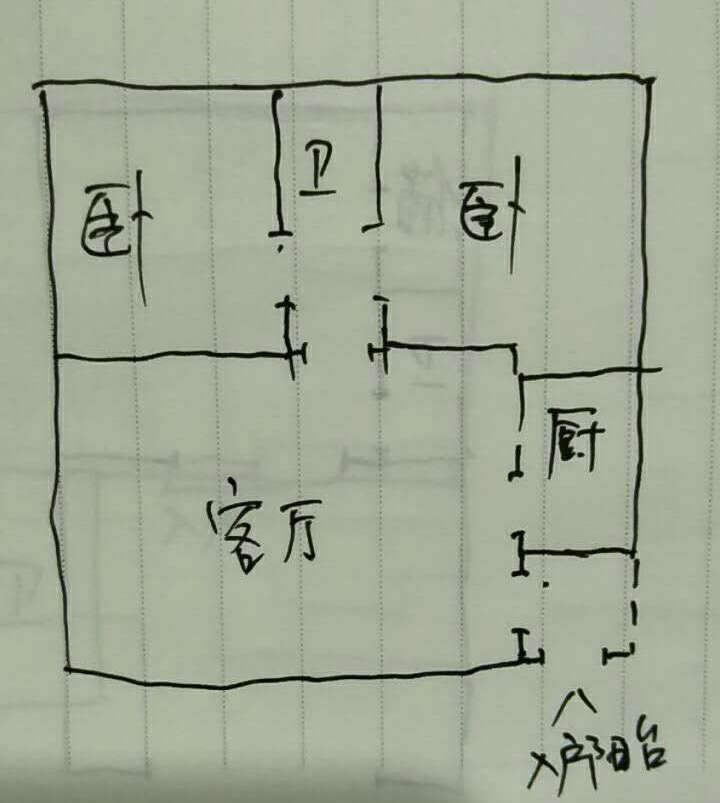 卧
卫
卧
厨
客厅
入户阳台